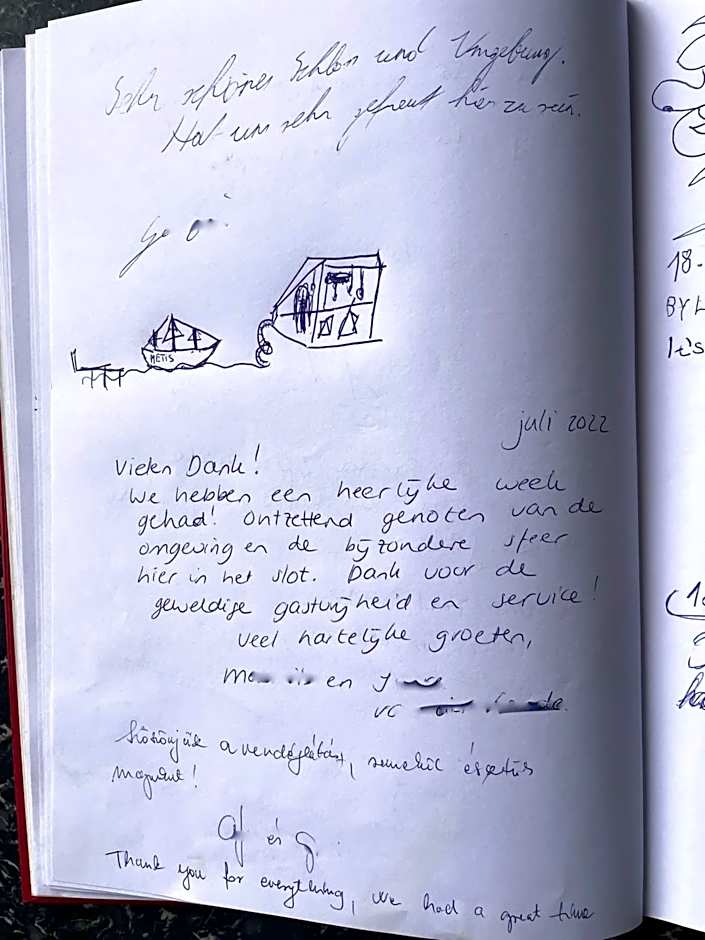 Sehr schönes Schloss und Umgebung.
Hat uns sehr gefreut hier zu sein.
METIS
juli 2022
Vielen Dank!
We hebben een heerlijke week
gehad! Ontzettend genoten van de
omgeving en de bijzondere sfeer
hier in het slot. Dank voor de
geweldige gastvrijheid en service!
Veel hartelijke groeten,
en J
a vendéglátást,
és
Thank you for everything, we had a great time
18-
BY
It's